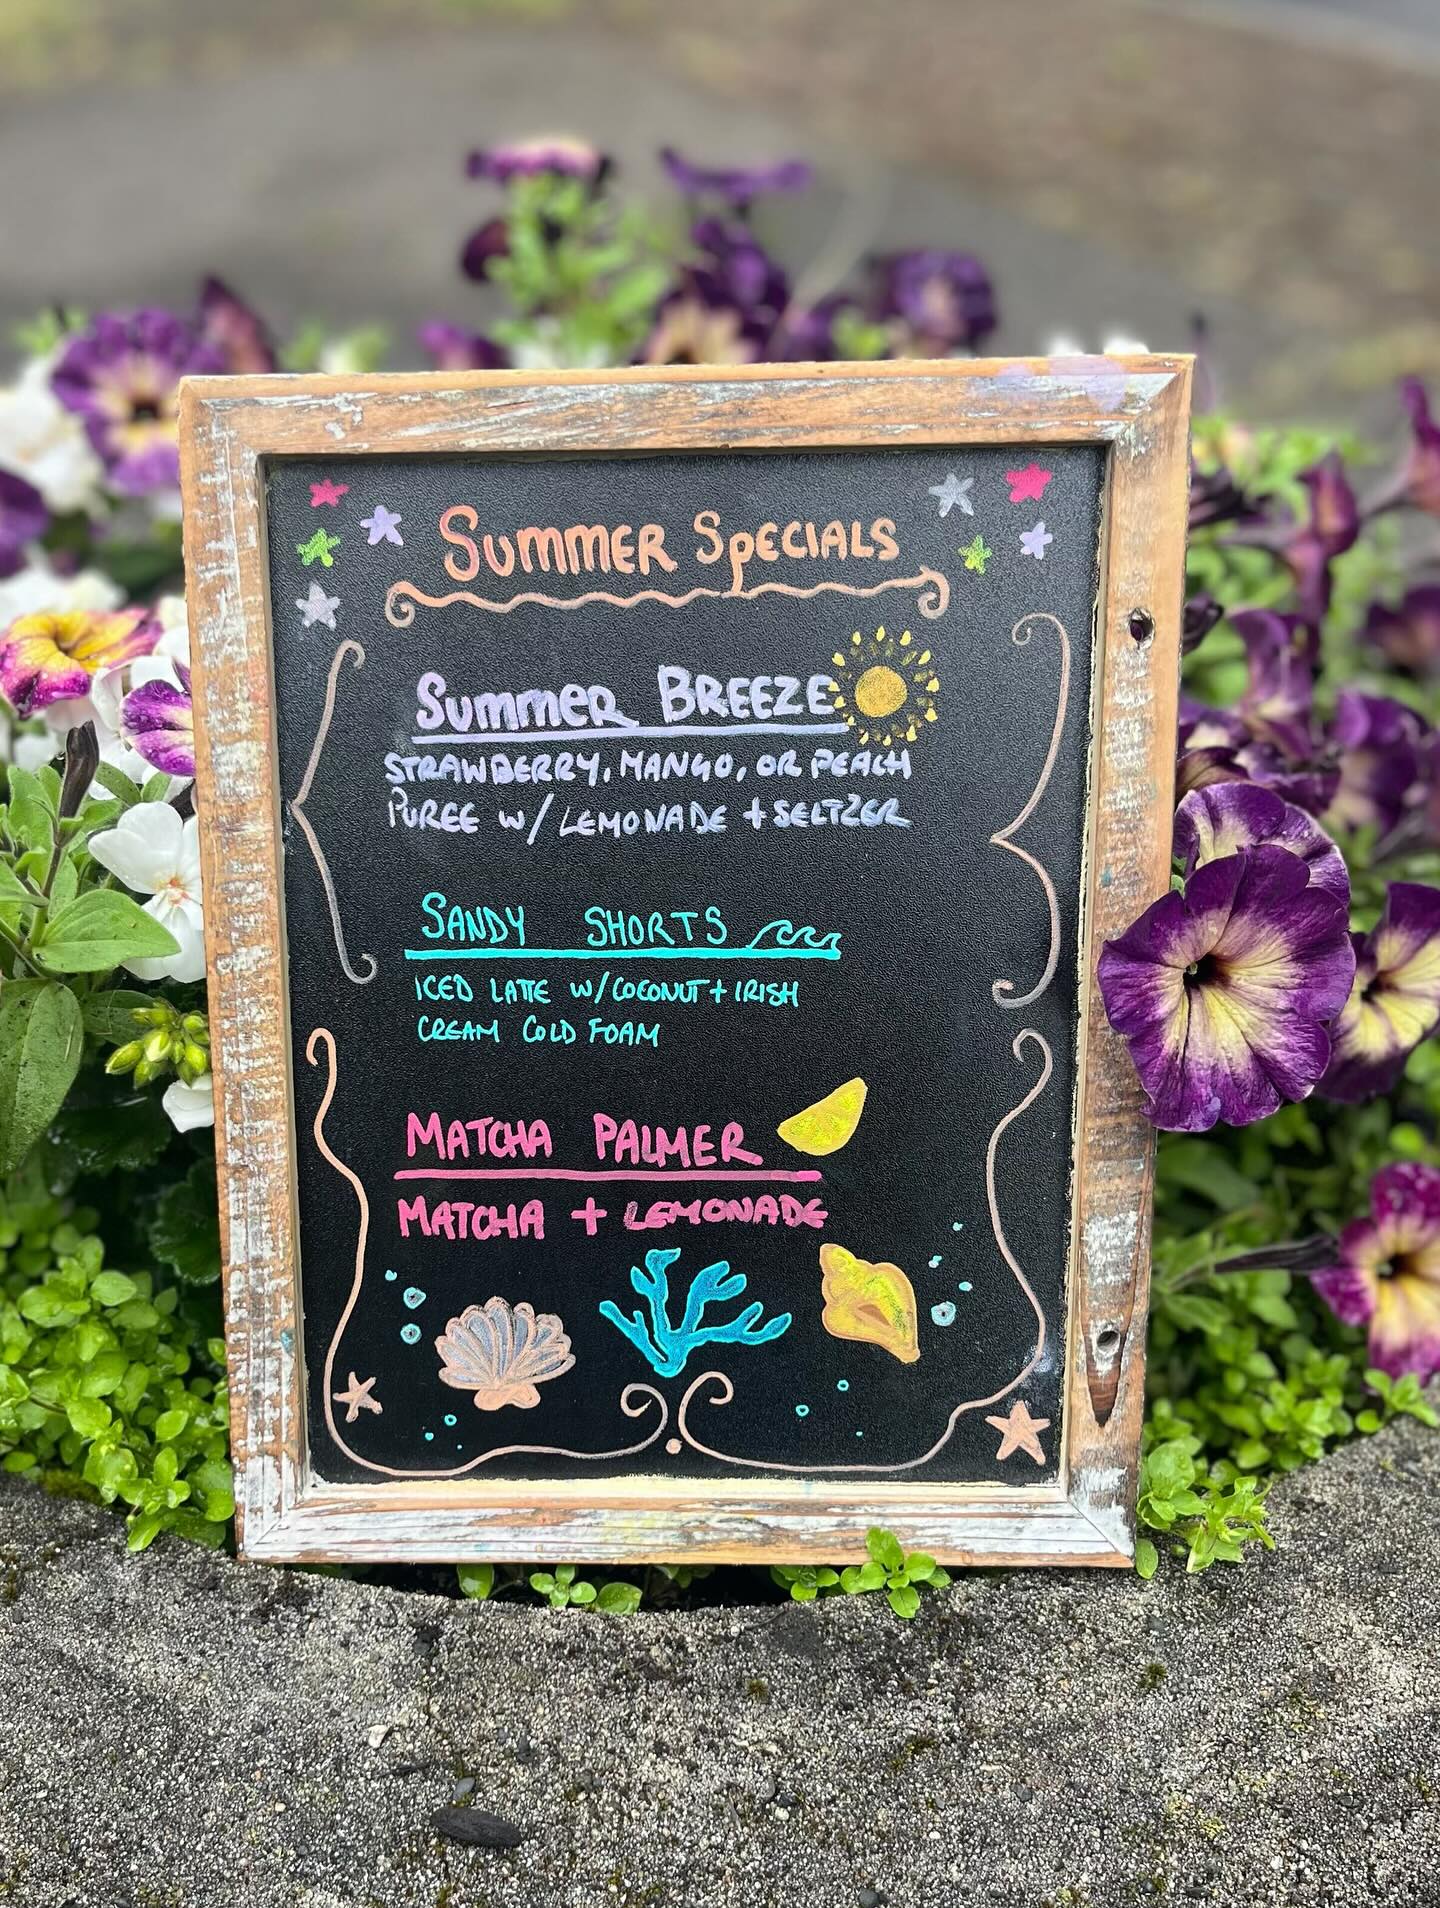 Summer Specials
Summer Breeze
Strawberry, Mango, or Peach
Puree w/ Lemonade + Seltzer
Sandy Shorts
Iced Latte w/ Coconut + Irish
Cream Cold Foam
Matcha Palmer
Matcha + Lemonade